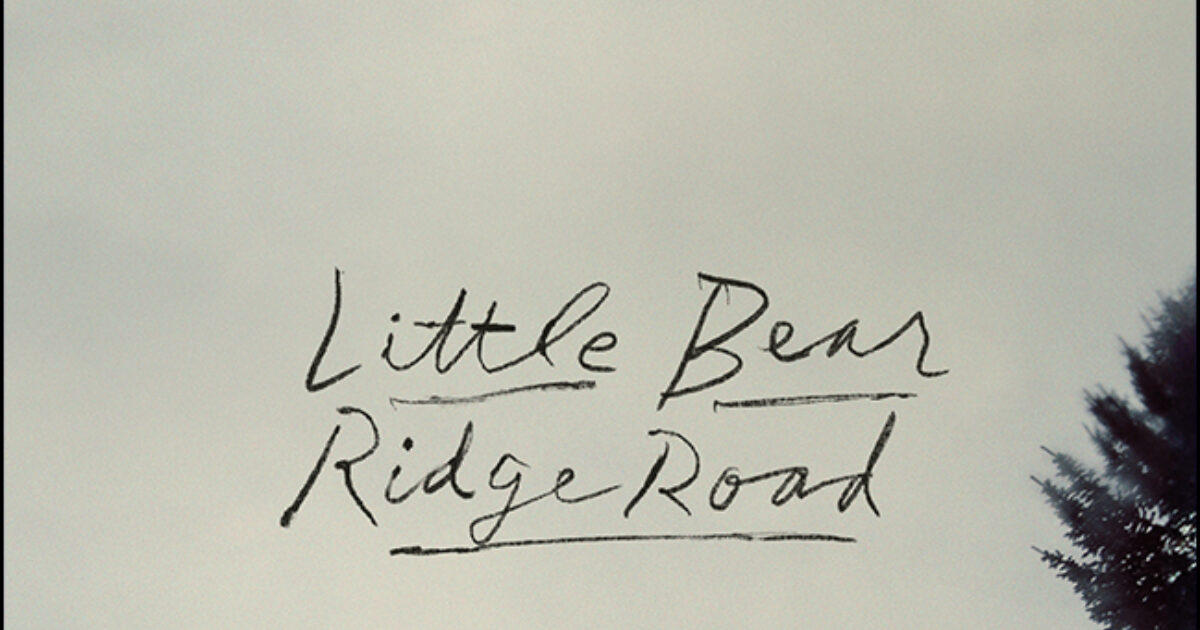 Little Bear
Ridge Road